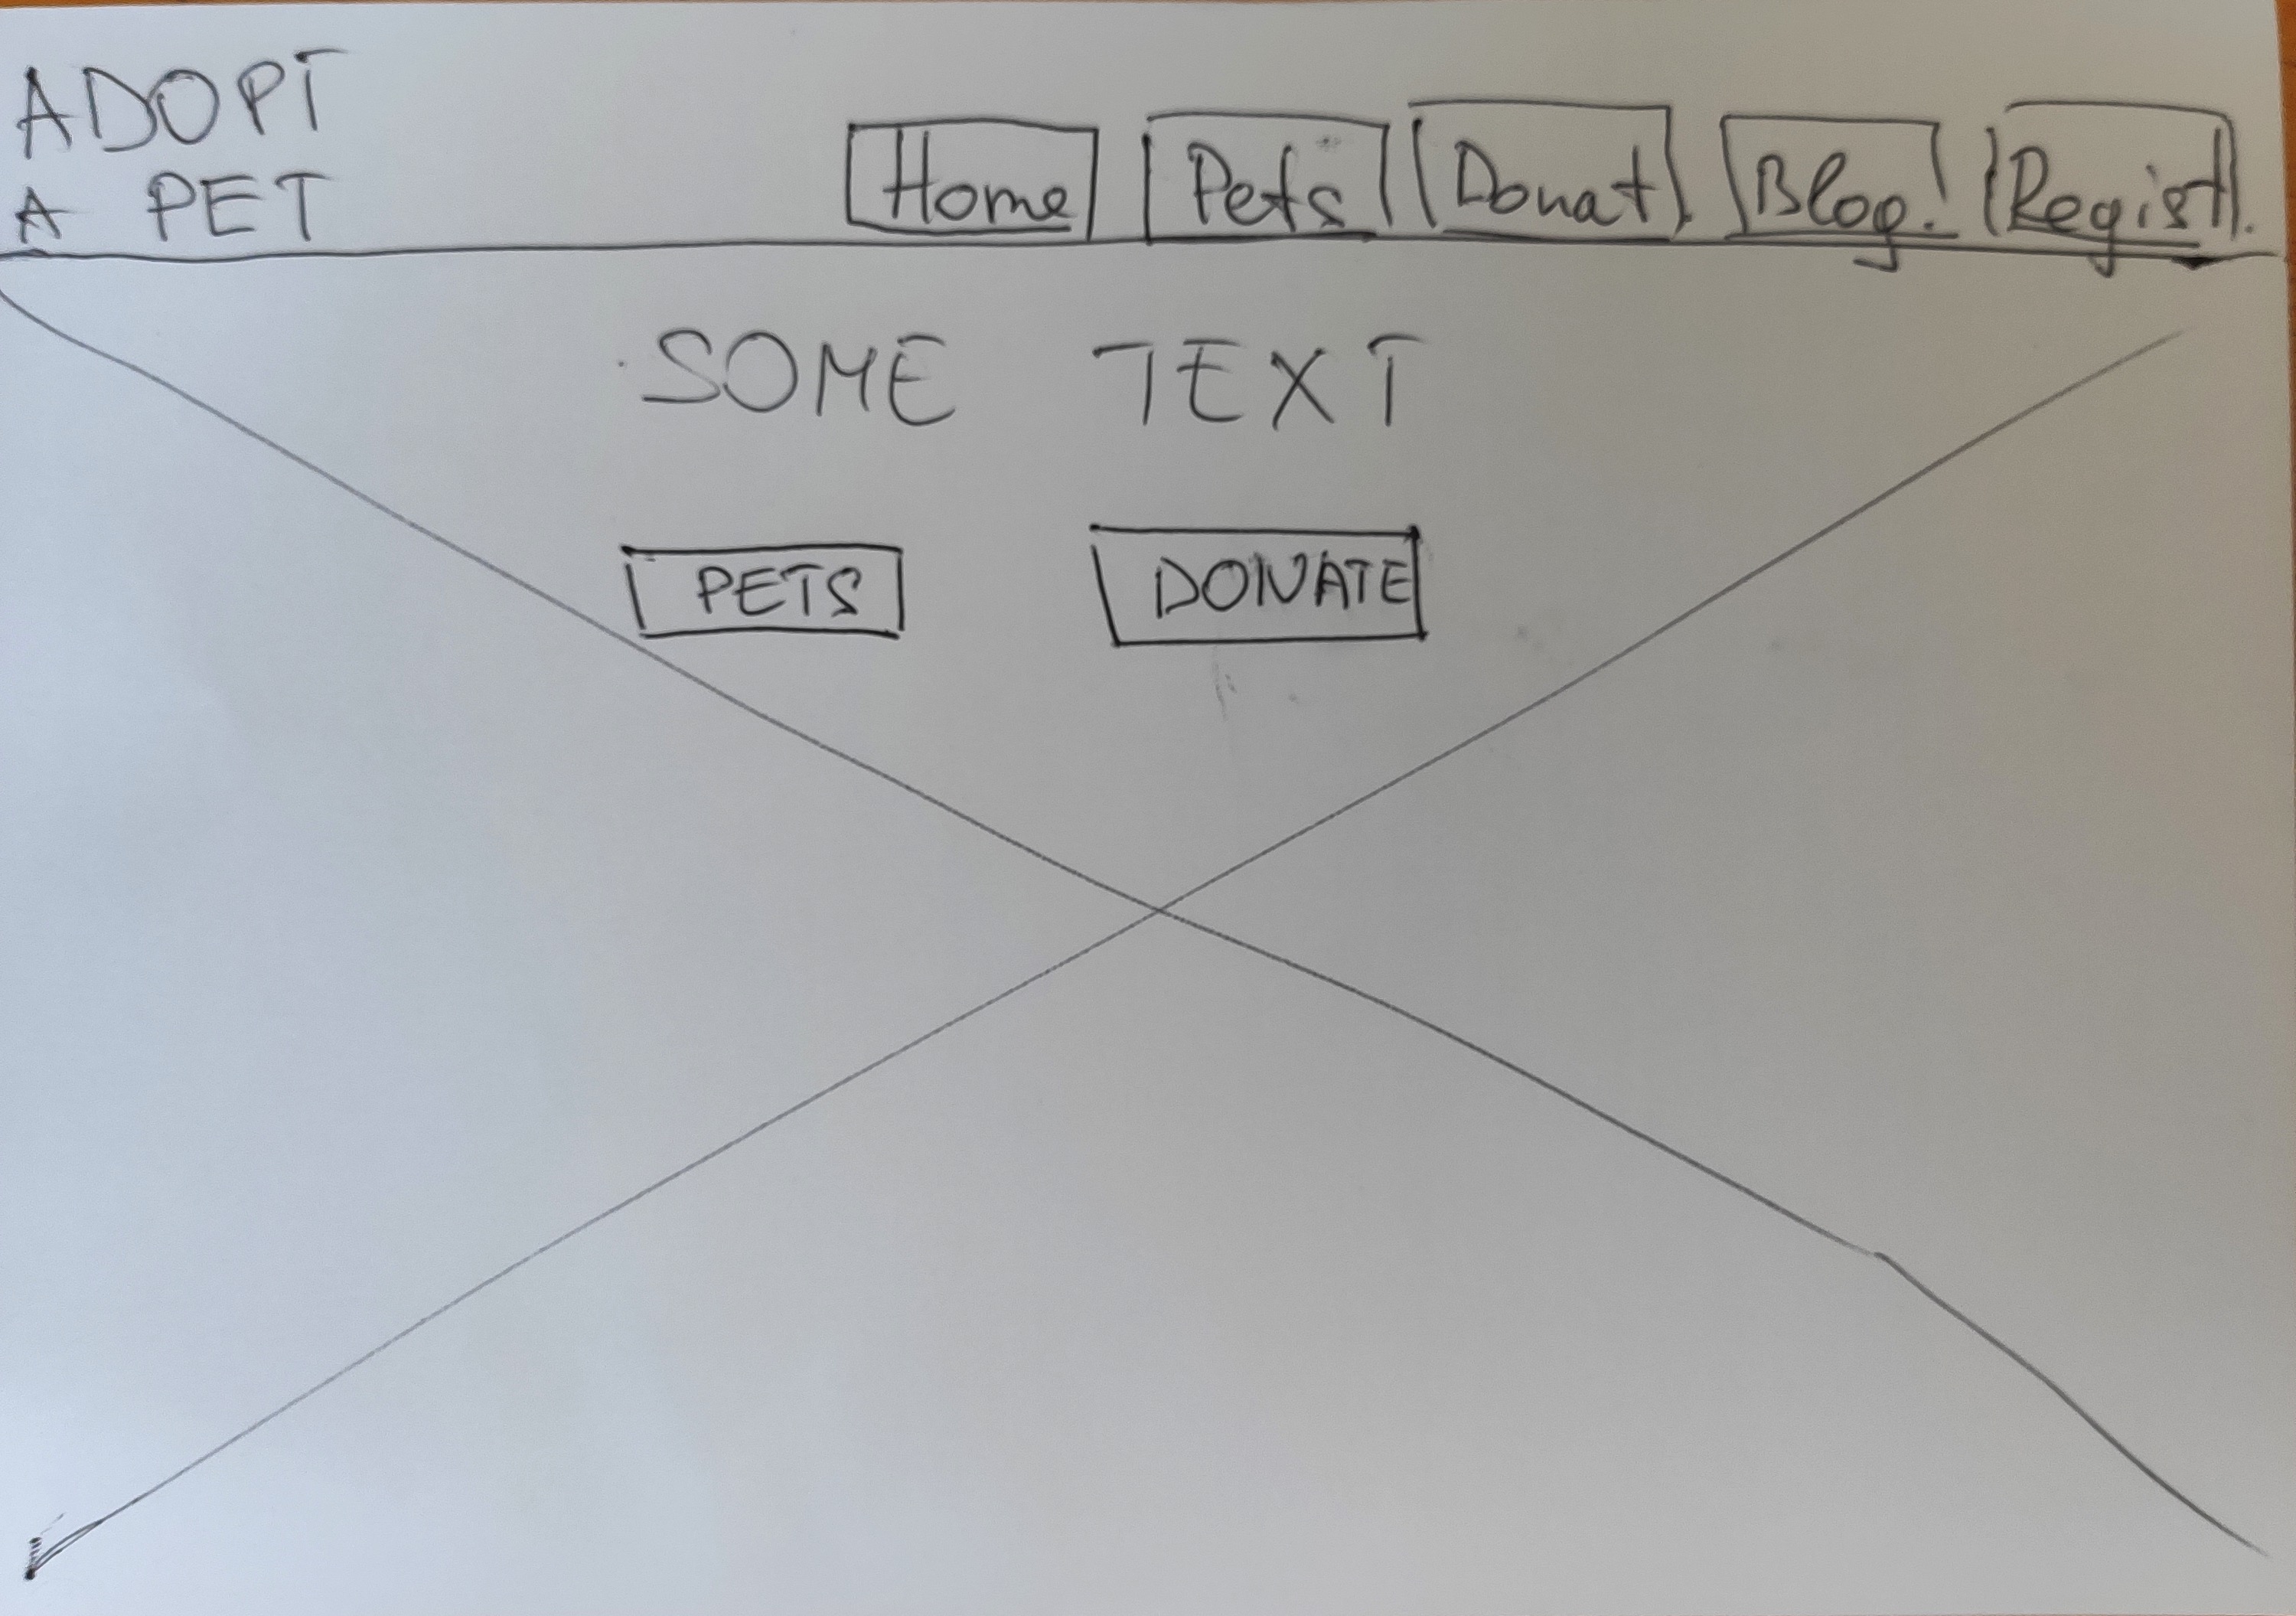 ADOPT
A PET
Home Pets Donat. Blog. Regist.
SOME TEXT
PETS DONATE